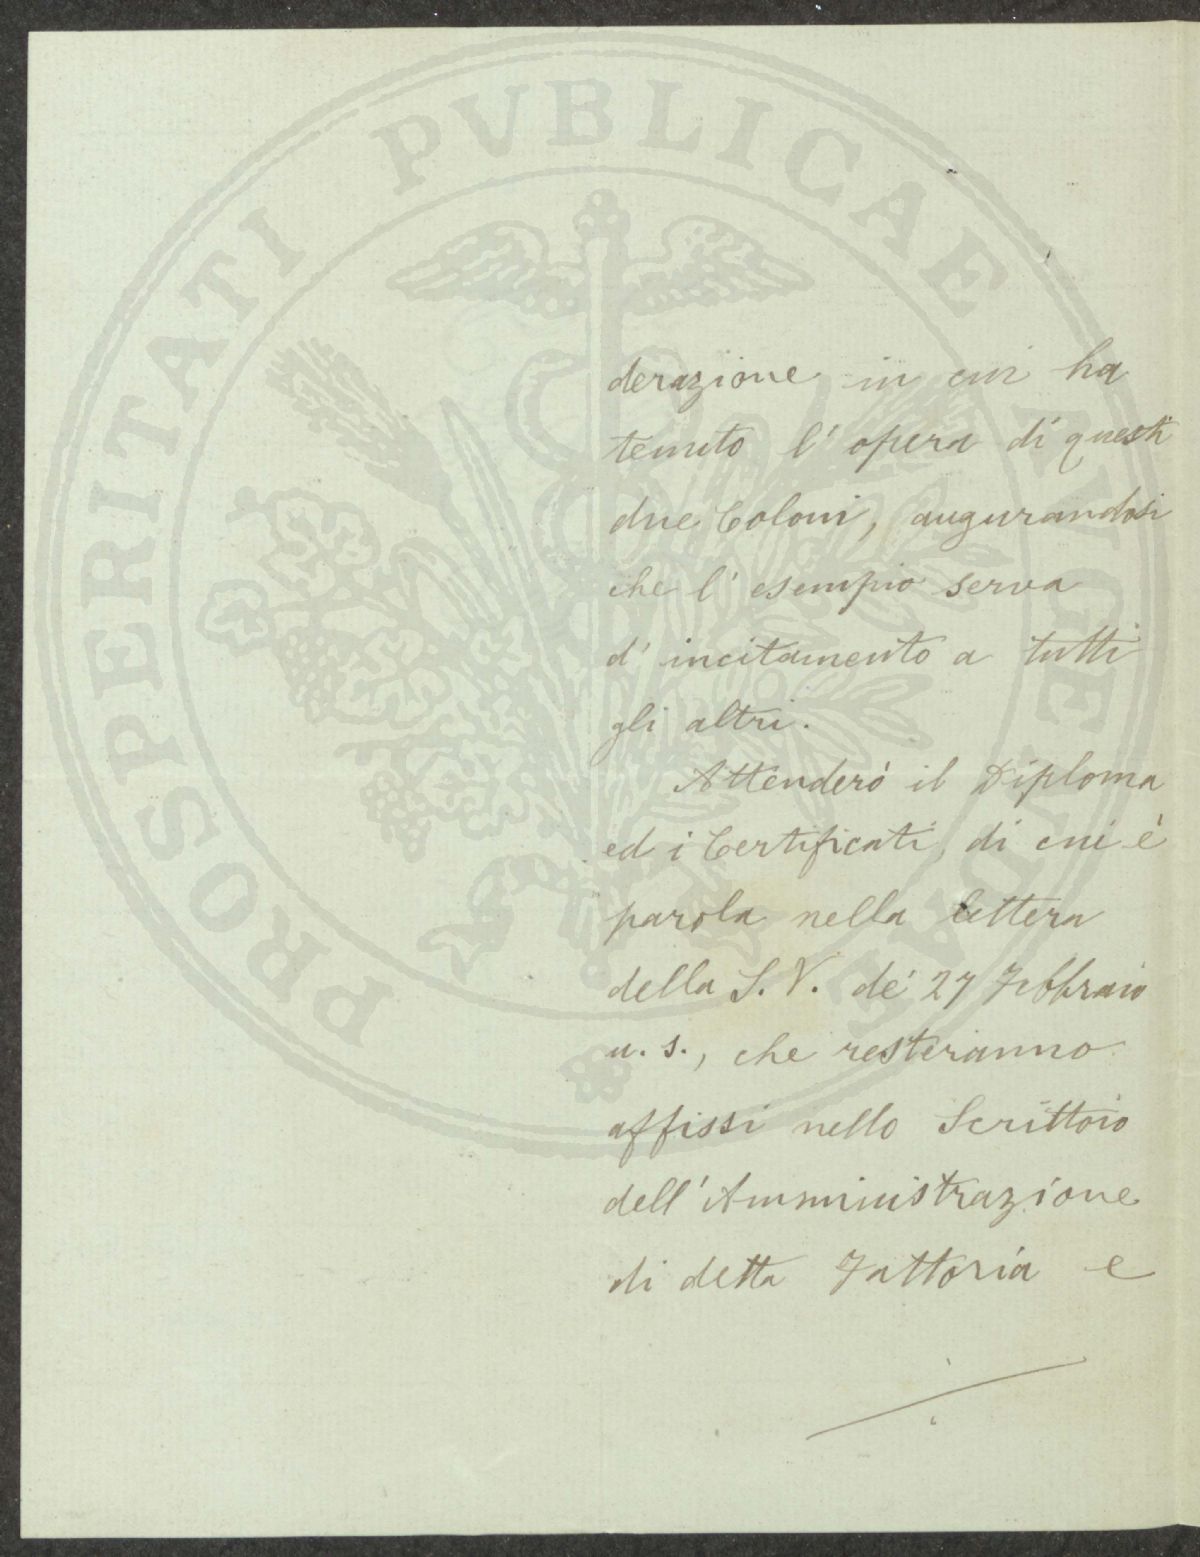 derazione in cui ha
tenuto l'opera di questi
due Coloni, augurandosi
che l'esempio serva
d'incitamento a tutti
gli altri.
Attenderò il Diploma
ed i Certificati, di cui è
parola nella lettera
della S. V. de' 27 Febbraio
u. s., che resteranno
affissi nello Scrittoio
dell'Amministrazione
di detta Fattoria e
PROSPERITATI PVBLICAE AVGENDAE